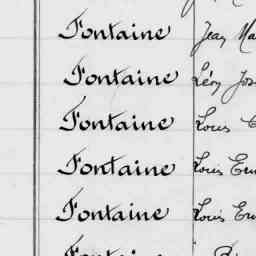 Fontaine Jean Ma
Fontaine Léon Jos
Fontaine Louis
Fontaine Louis Ern
Fontaine Louis Ern
Fontaine